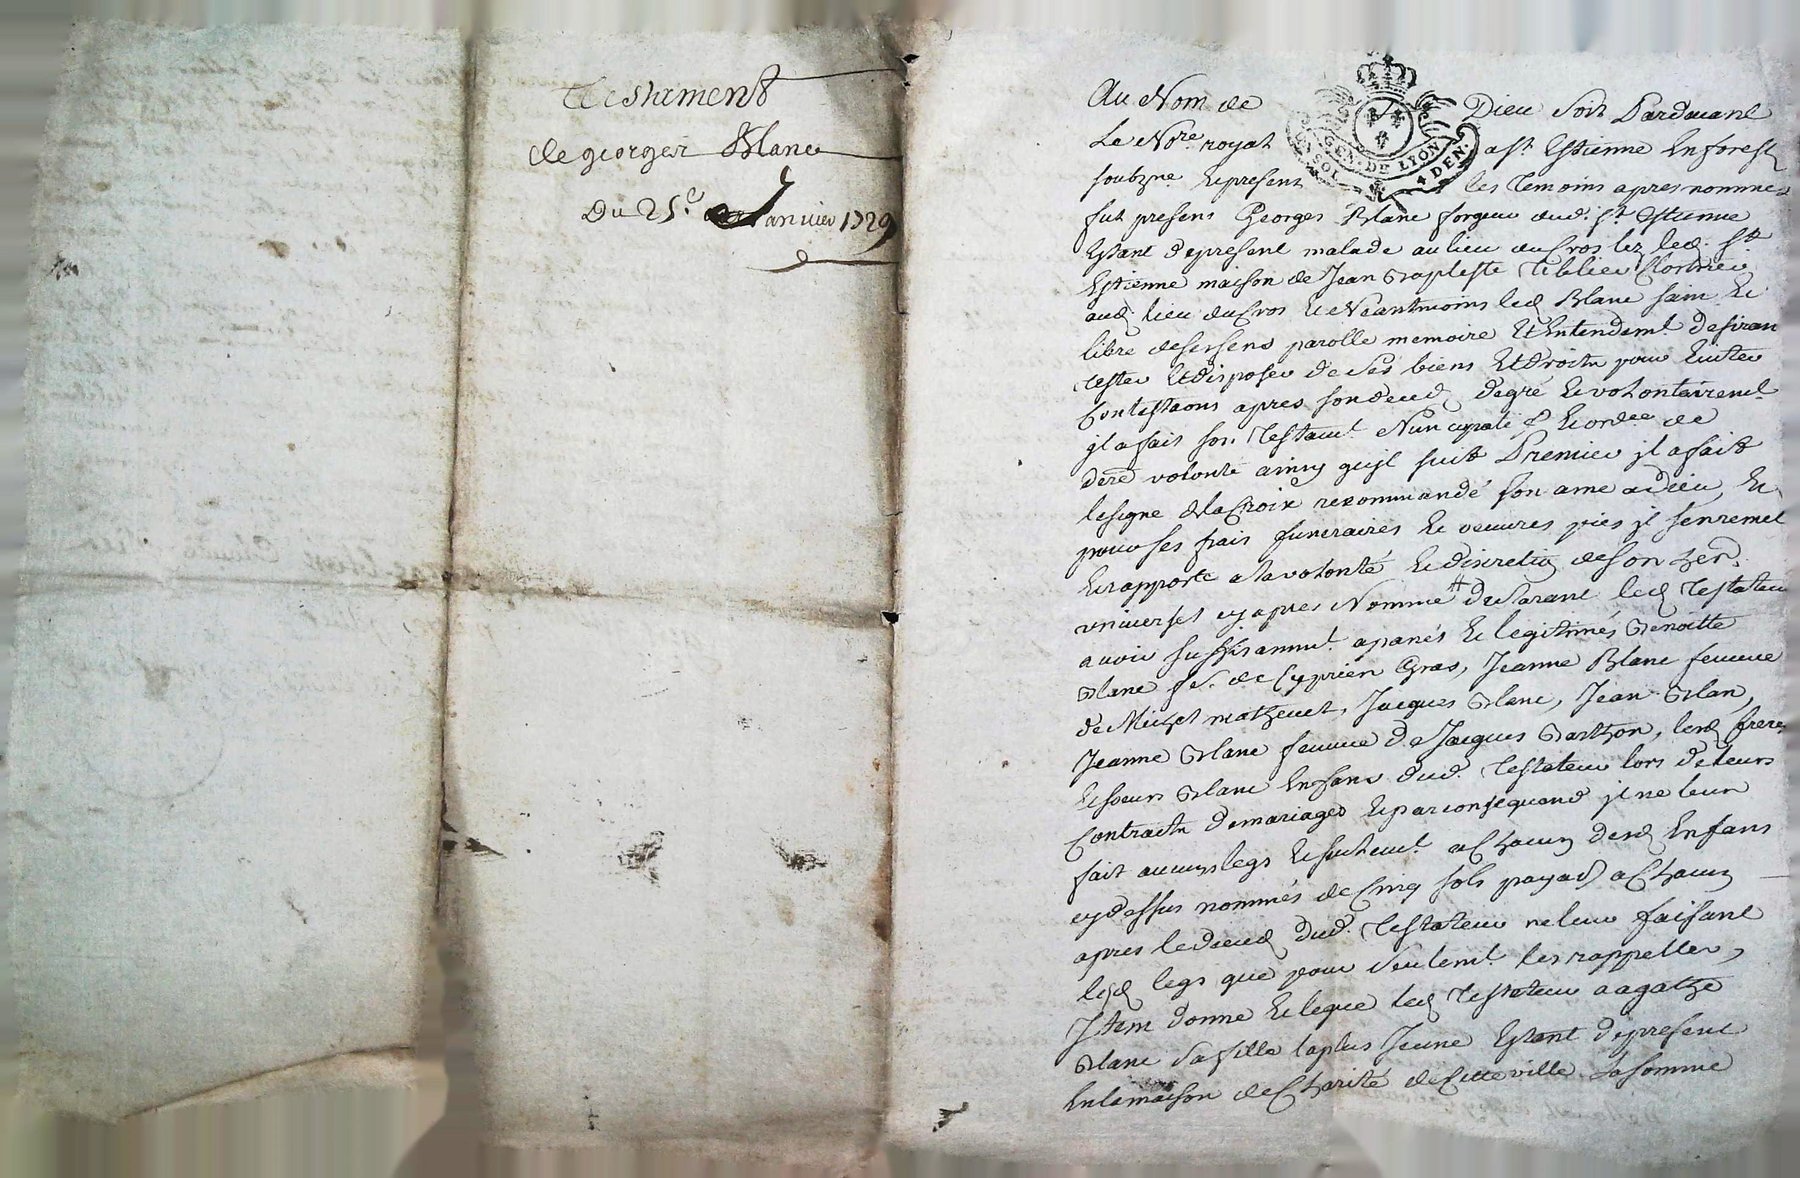 Testament
de georges Blanc
Du 25.e Janvier 1729
Au Nom de Dieu soit Pardavant
Le No.re royal a st Estienne En forest
soubz.ne Et present les temoins apres nommes
fut present Georges Blanc forgeur dud. st Estienne
Estant depresent malade au lieu du Cros lez led. st
Estienne maison de Jean Baptiste
aud. lieu du Cros Et Neantmoins led Blanc sain Et
libre de ses sens parolle memoire Et Entendem.t desirant
tester Et disposer de ses biens Et droits pour Eviter
Contestaons apres son deced, degré Et volontairem.t
jl a fait son testam.t Nuncupatif Et ord.ce de
der.e volonte ainsy qu'jl suit Premier jl a fait
le signe de la Croix recommandé son ame a dieu, Et
pour ses frais funeraires Et oeuvres pies jl s'en remet
Et rapporte a la volonté Et discretion de son her.
universel cy apres Nommé # Declarant led testateur
avoir suffisamm.t apanés Et legitimés Benoitte
Blanc fe. de Cyprien Gras, Jeanne Blanc femme
de Michel mathevet, Jacques Blanc, Jean Blan,
Jeanne Blanc femme de Jacques Barthon, lesd freres
Et soeurs Blanc Enfans dud. testateur lors de leurs
Contracts de mariages Et par consequand jl ne leur
fait aucuns legs a Chacun desd Enfans
cy dessus nommés de Cinq sols payab a Chacun
apres le deced dud. testateur ne leur faisant
lesd legs que pour seulem.t les rappeller,
Jtem donne Et legue led testateur a agathe
Blanc sa fille la plus Jeune Estant depresent
En la maison de Charité de Cette ville La somme
GEN. DE LYON
DEN.
SOL